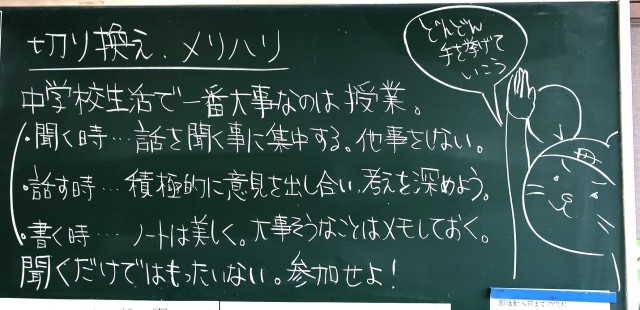 切り換え、メリハリ
どんどん
手を挙げて
いこう
中学校生活で一番大事なのは授業。
・聞く時…話を聞く事に集中する。他事をしない。
・話す時…積極的に意見を出し合い、考えを深めよう。
・書く時…ノートは美しく。大事そうなことはメモしておく。
聞くだけではもったいない。参加せよ！